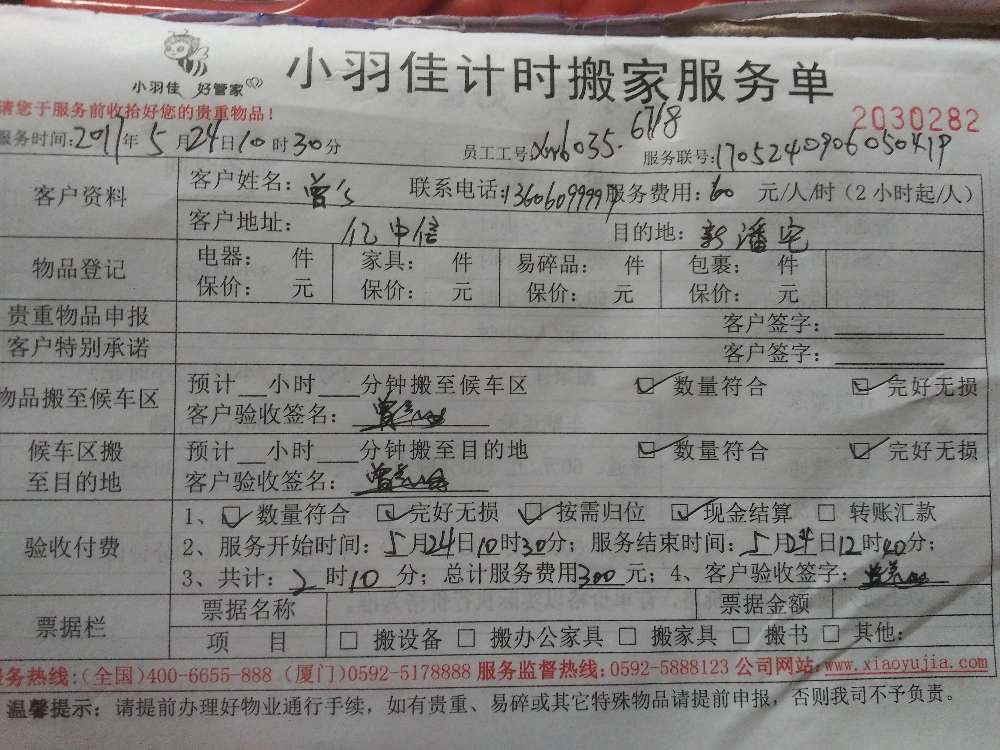 小羽佳 好管家
小羽佳计时搬家服务单
请您于服务前收拾好您的贵重物品！
2030282
服务时间:2017年5月24日10时30分 员工工号:xm6035.6718 服务联号:170524090605041P
客户资料 客户姓名: 曾 联系电话:服务费用:60 元/人/时（2小时起/人）
客户地址: 亿中信 目的地: 新潘宅
物品登记 电器： 件 家具： 件 易碎品： 件 包裹： 件
保价： 元 保价： 元 保价： 元 保价： 元
贵重物品申报 客户签字：
客户特别承诺 客户签字：
物品搬至候车区 预计 小时 分钟搬至候车区 ☑ 数量符合 ☑ 完好无损
客户验收签名：
候车区搬至目的地 预计 小时 分钟搬至目的地 ☑ 数量符合 ☑ 完好无损
客户验收签名：
验收付费 1、☑ 数量符合 ☑ 完好无损 ☑ 按需归位 ☑ 现金结算 □ 转账汇款
2、服务开始时间：5月24日10时30分；服务结束时间：5月24日12时40分；
3、共计：2时10分；总计服务费用300元；4、客户验收签字：
票据栏 票据名称 票据金额
项 目 □ 搬设备 □ 搬办公家具 □ 搬家具 □ 搬书 □ 其他:
服务热线:(全国)400-6655-888 (厦门)0592-5178888 服务监督热线:0592-5888123 公司网站:www.xiaoyujia.com
温馨提示：请提前办理好物业通行手续，如有贵重、易碎或其它特殊物品请提前申报，否则我司不予负责。